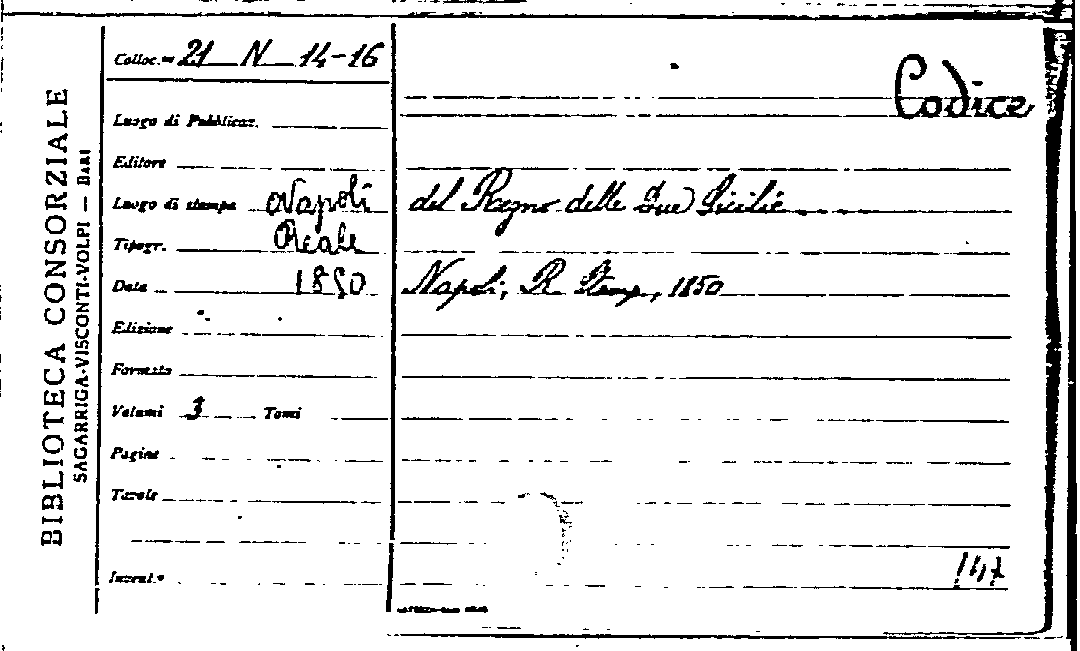 BIBLIOTECA CONSORZIALE
SAGARRIGA-VISCONTI-VOLPI — BARI
Colloc.ne 21 N 14-16
Codice
Luogo di Pubblicaz.
Editore
Luogo di stampa Napoli
del Regno delle Due Sicilie
Tipogr. Reale
Data 1850
Napoli, R. Stamp., 1850
Edizione
Formato
Volumi 3 Tomi
Pagine
Tavole
Invent.°
147